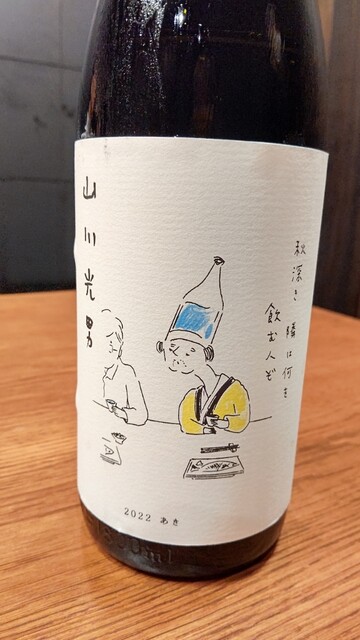 秋深き隣は何を
飲む人ぞ
山川光男
2022 あき